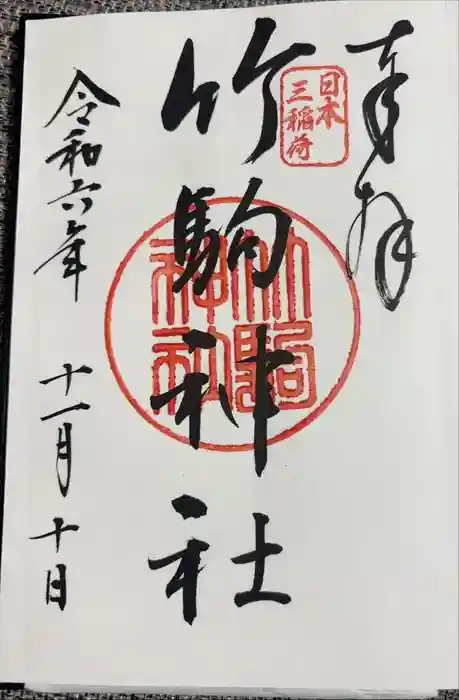 奉拝
日本
三稲荷
竹駒神社
竹駒
神社
令和六年 十一月 十日